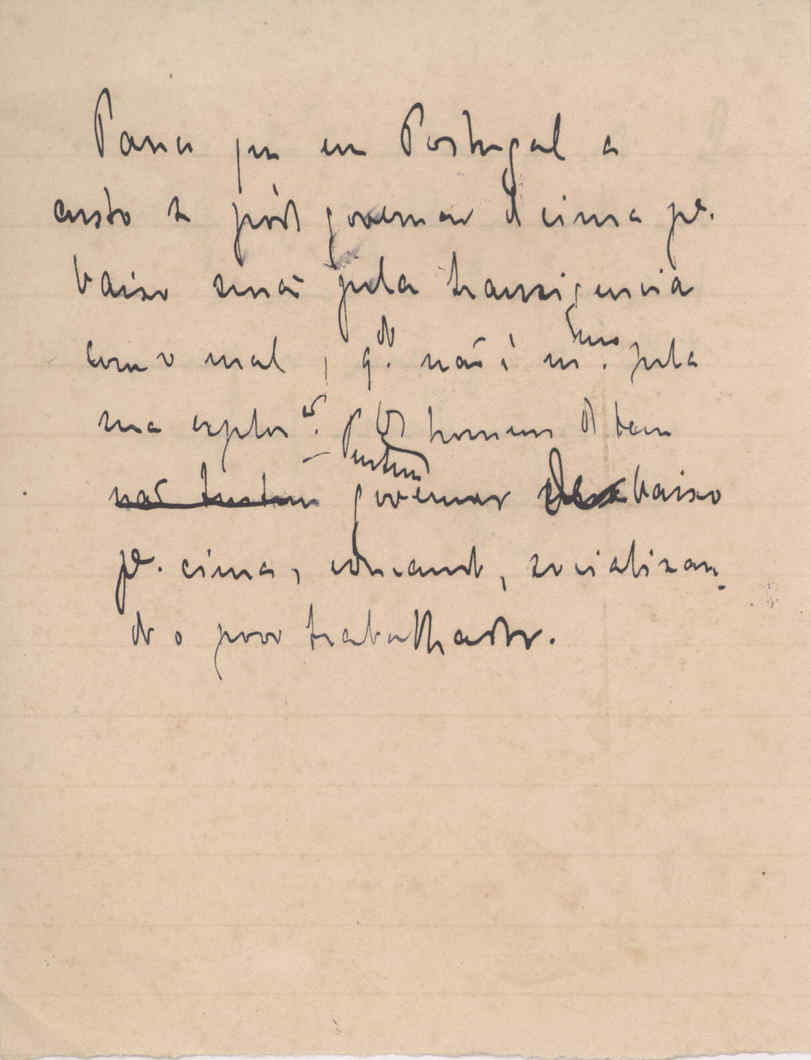 Parece que em Portugal a
custo se póde governar de cima pª.
baixo senão pela transigencia
com o mal, q.do não é mesmo pela
sua explor.ão. Os homens de bem
não tentem tentem governar de baixo
pª. cima, educando, socializan-
do o povo trabalhador.